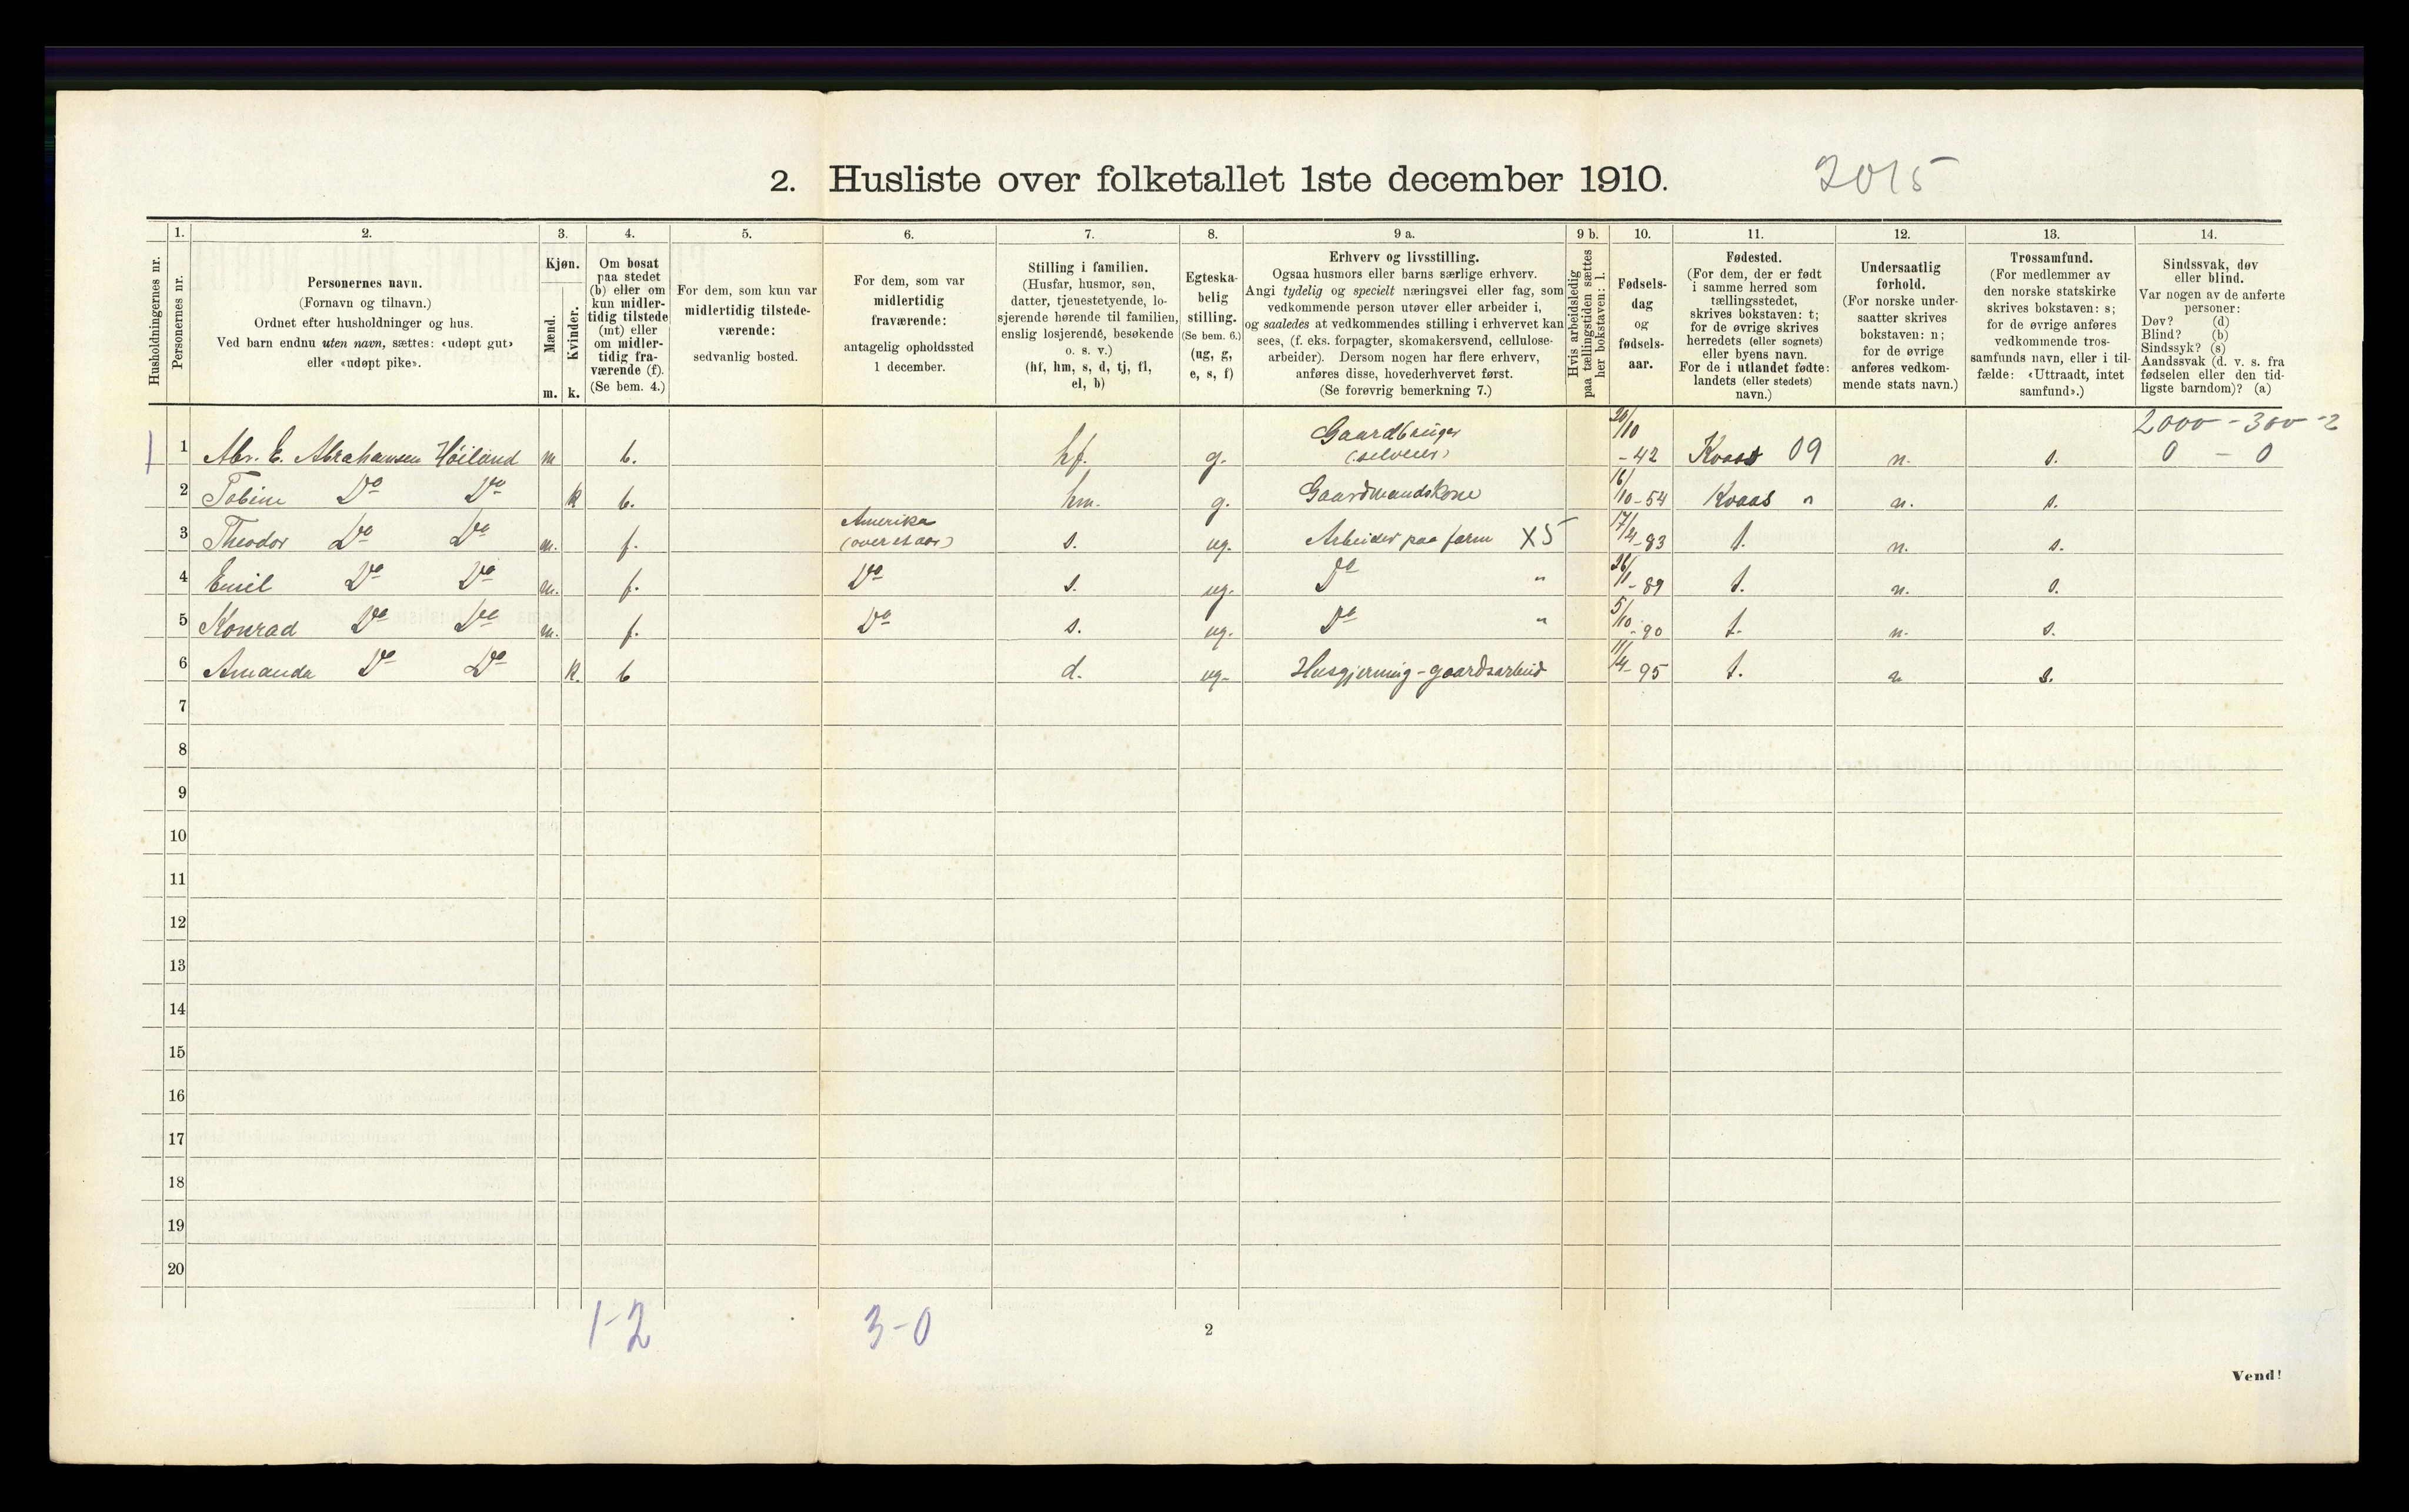 2. Husliste over folketallet 1ste december 1910. 2015
Husholdningernes nr.
1. Personernes nr.
2. Personernes navn. (Fornavn og tilnavn.) Ordnet efter husholdninger og hus. Ved barn endnu uten navn, sættes: «udøpt gut» eller «udøpt pike».
3. Kjøn. Mænd. m. Kvinder. k.
4. Om bosat paa stedet (b) eller om kun midlertidig tilstede (mt) eller om midlertidig fraværende (f). (Se bem. 4.)
5. For dem, som kun var midlertidig tilstedeværende: sedvanlig bosted.
6. For dem, som var midlertidig fraværende: antagelig opholdssted 1 december.
7. Stilling i familien. (Husfar, husmor, søn, datter, tjenestetyende, losjerende hørende til familien, enslig losjerende, besøkende o. s. v.) (hf, hm, s, d, tj, fl, el, b)
8. Egteskabelig stilling. (Se bem. 6.) (ug, g, e, s, f)
9 a. Erhverv og livsstilling. Ogsaa husmors eller barns særlige erhverv. Angi tydelig og specielt næringsvei eller fag, som vedkommende person utøver eller arbeider i, og saaledes at vedkommendes stilling i erhvervet kan sees, (f. eks. forpagter, skomakersvend, cellulosearbeider). Dersom nogen har flere erhverv, anføres disse, hovederhvervet først. (Se forøvrig bemerkning 7.)
9 b. Hvis arbeidsledig paa tællingstiden sættes her bokstaven: l.
10. Fødselsdag og fødselsaar.
11. Fødested. (For dem, der er født i samme herred som tællingsstedet, skrives bokstaven: t; for de øvrige skrives herredets (eller sognets) eller byens navn. For de i utlandet fødte: landets (eller stedets) navn.)
12. Undersaatlig forhold. (For norske undersaatter skrives bokstaven: n; for de øvrige anføres vedkommende stats navn.)
13. Trossamfund. (For medlemmer av den norske statskirke skrives bokstaven: s; for de øvrige anføres vedkommende trossamfunds navn, eller i tilfælde: «Uttraadt, intet samfund».)
14. Sindssvak, døv eller blind. Var nogen av de anførte personer: Døv? (d) Blind? (b) Sindssyk? (s) Aandssvak (d. v. s. fra fødselen eller den tidligste barndom)? (a)
2000 - 300 - 2
1 1 Abr. E. Abrahamsen Høiland m b. hf. g. Gaardbruger (selveier) 20/10 - 42 Kvaas 09 n. s. 0 - 0
2 Tobine Do Do k b. hm. g. Gaardmandskone 16/10 - 54 Kvaas " n. s.
3 Theodor Do Do m. f. Amerika (over et aar) s. ug. Arbeider paa farm X5 17/4 - 83 t. n. s.
4 Emil Do Do m. f. Do s. ug. Do " 26/1 - 89 t. n. s.
5 Konrad Do Do m. f. Do s. ug. Do " 5/10 - 90 t. n. s.
6 Amanda Do Do k. b d. ug. Husgjerning - gaardsarbeid 11/4 - 95 t. n s.
7
8
9
10
11
12
13
14
15
16
17
18
19
20
1-2 3-0
2
Vend!